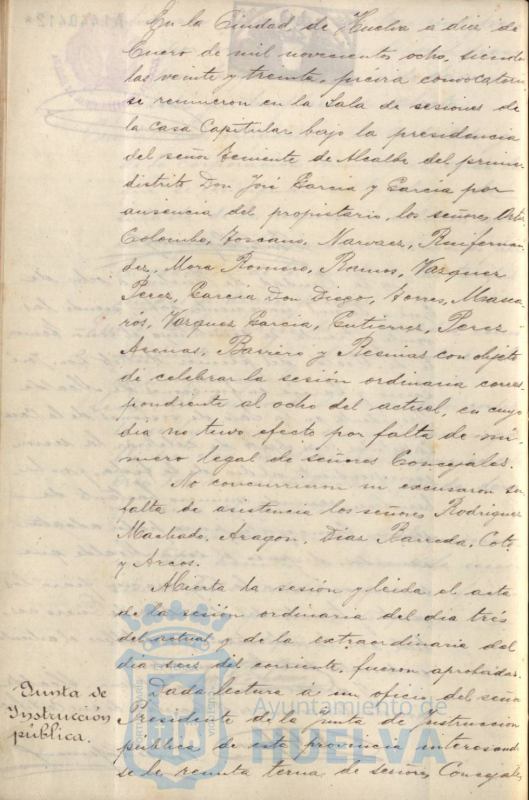 En la Ciudad de Huelva á diez de
Enero de mil novecientos ocho, siendo
las veinte y treinta, previa convocatoria
se reunieron en la Sala de sesiones de
la Casa Capitular bajo la presidencia
del señor Teniente de Alcalde del primer
distrito Don José García y García por
ausencia del propietario, los señores
Colombo, Toscano, Narvaez,
dez, Mora Romero, Ramos, Vazquez
Perez, García Don Diego, Torres, Masca-
rós, Vazquez García, Gutierrez, Perez
Arenas, Barrero y con objeto
de celebrar la sesión ordinaria corres-
pondiente al ocho del actual, en cuyo
día no tuvo efecto por falta de nú-
mero legal de señores Concejales.
No concurrieron ni excusaron su
falta de asistencia los señores Rodriguez
Machado, Aragón, Diaz
y Arcos.
Abierta la sesión y leida el acta
de la sesión ordinaria del día tres
del actual y de la extraordinaria del
día seis del corriente, fueron aprobadas.
Junta de
Instrucción
pública.
Dada lectura á un oficio del señor
Presidente de la junta de instrucción
pública de esta provincia interesando
se le remita terna de señores Concejales
Ayuntamiento de
HUELVA